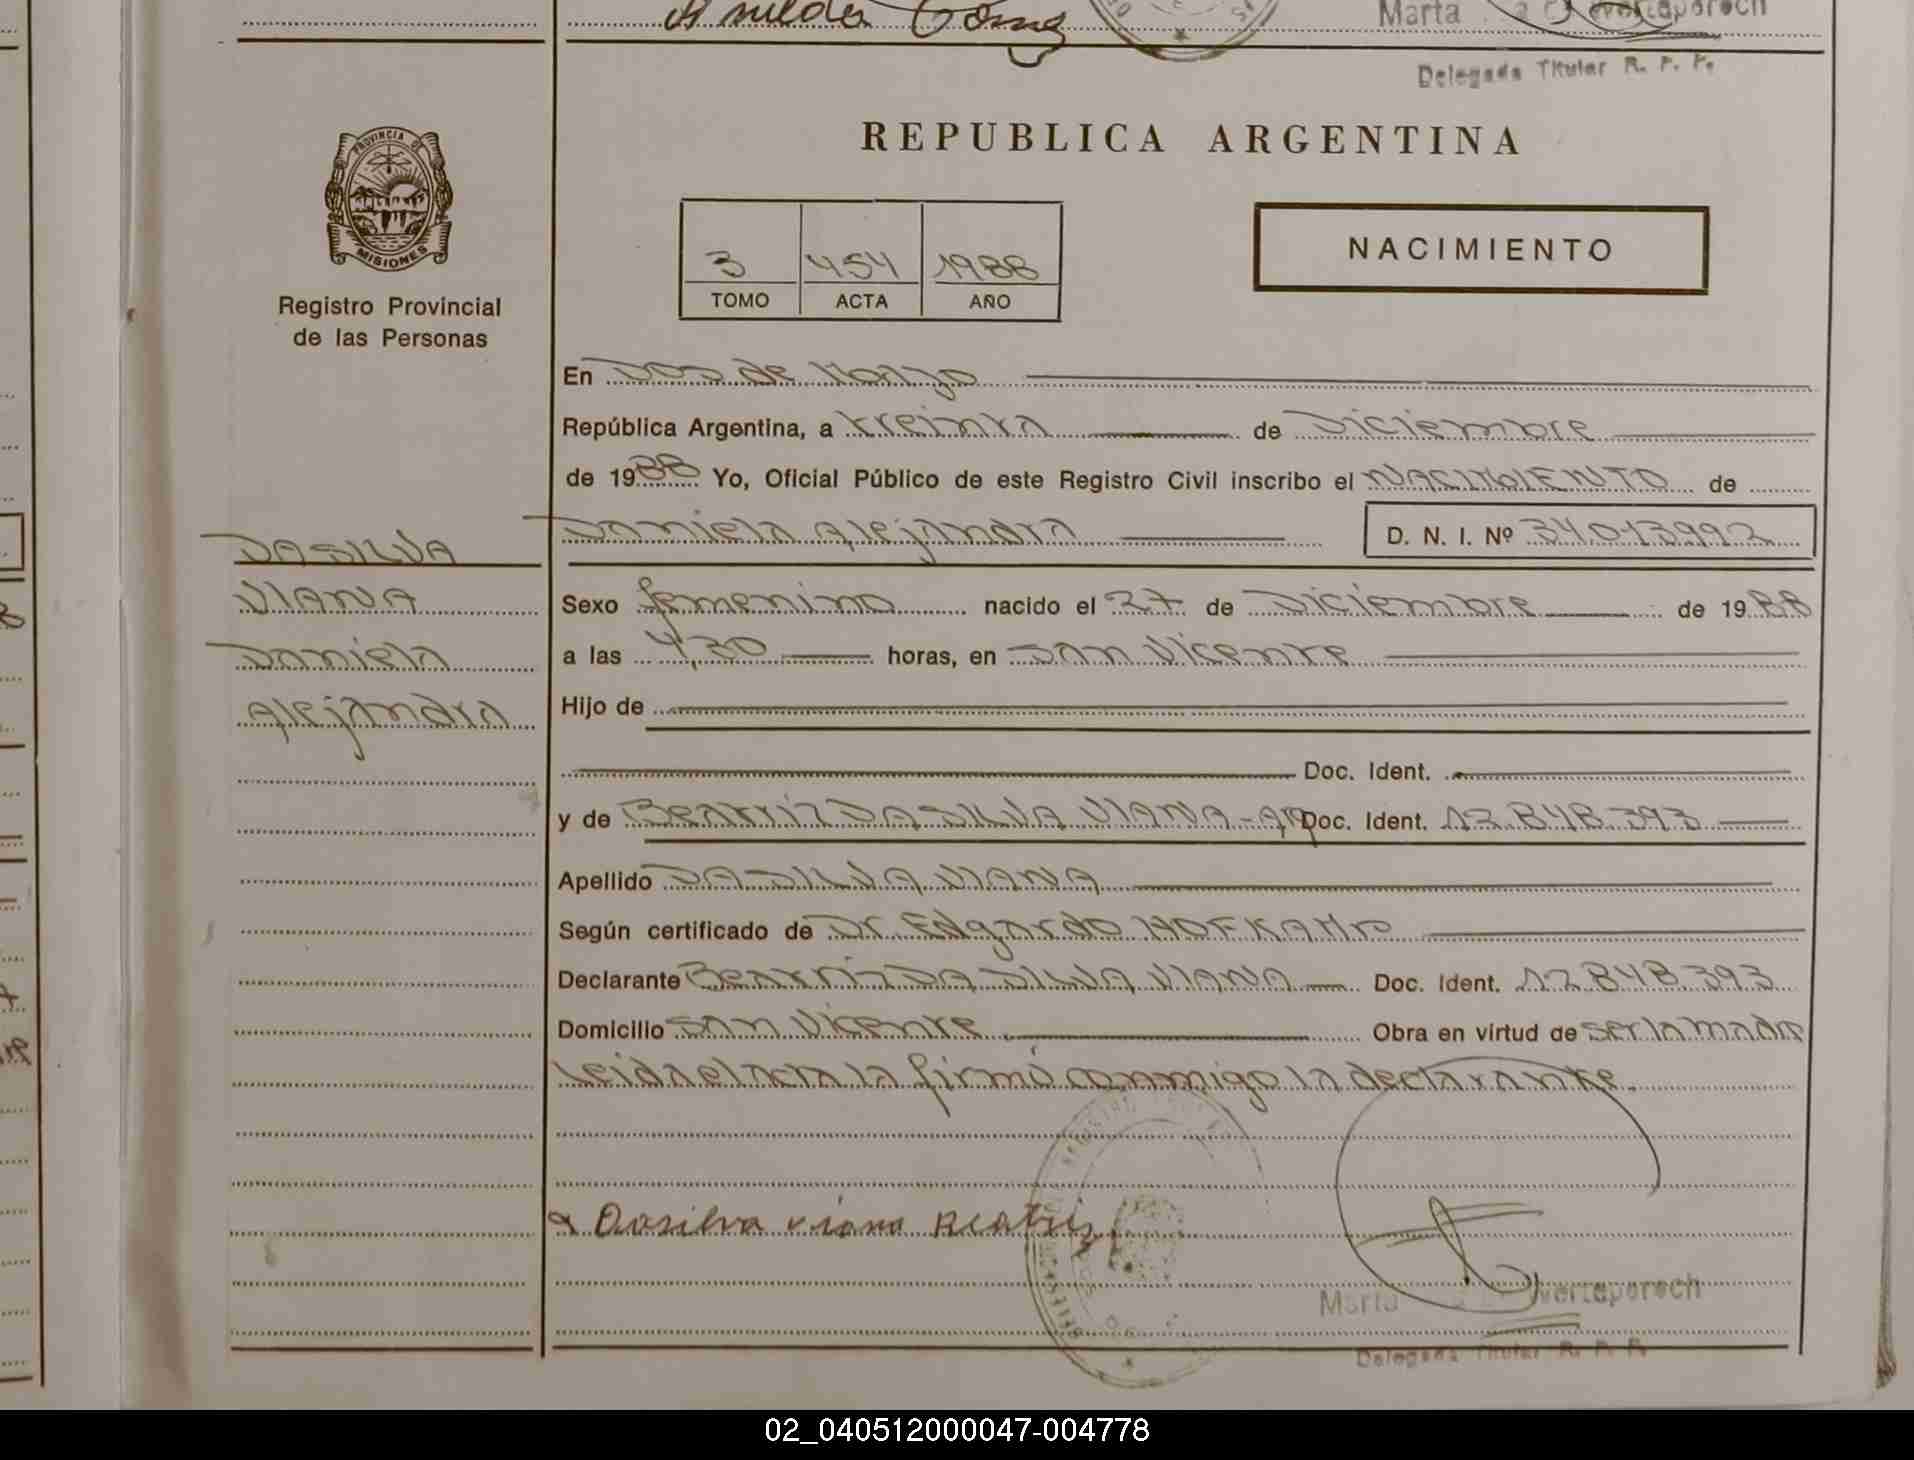 Marta
Delegada Titular R. P. P.
REPUBLICA ARGENTINA
PROVINCIA DE
MISIONES
Registro Provincial
de las Personas
NACIMIENTO
3 454 1988
TOMO ACTA AÑO
En Dos de Mayo
República Argentina, a treinta de Diciembre
de 1988 Yo, Oficial Público de este Registro Civil inscribo el NACIMIENTO de
Daniela Alejandra D. N. I. Nº 34.013992
DA SILVA
VIANA
Daniela
Alejandra
Sexo femenino nacido el 27 de Diciembre de 1988
a las 4,30 horas, en San Vicente
Hijo de
Doc. Ident.
y de Beatriz DA SILVA VIANA - Doc. Ident. 12.848.393
Apellido DA SILVA VIANA
Según certificado de Dr. Edgardo HOFKAMP
Declarante Beatriz DA SILVA VIANA Doc. Ident. 12.848.393
Domicilio San Vicente Obra en virtud de ser la madre
Leida el acta la firmó conmigo la declarante.
Dasilva viana Beatriz
Marta
Delegada Titular R. P. P.
02_040512000047-004778